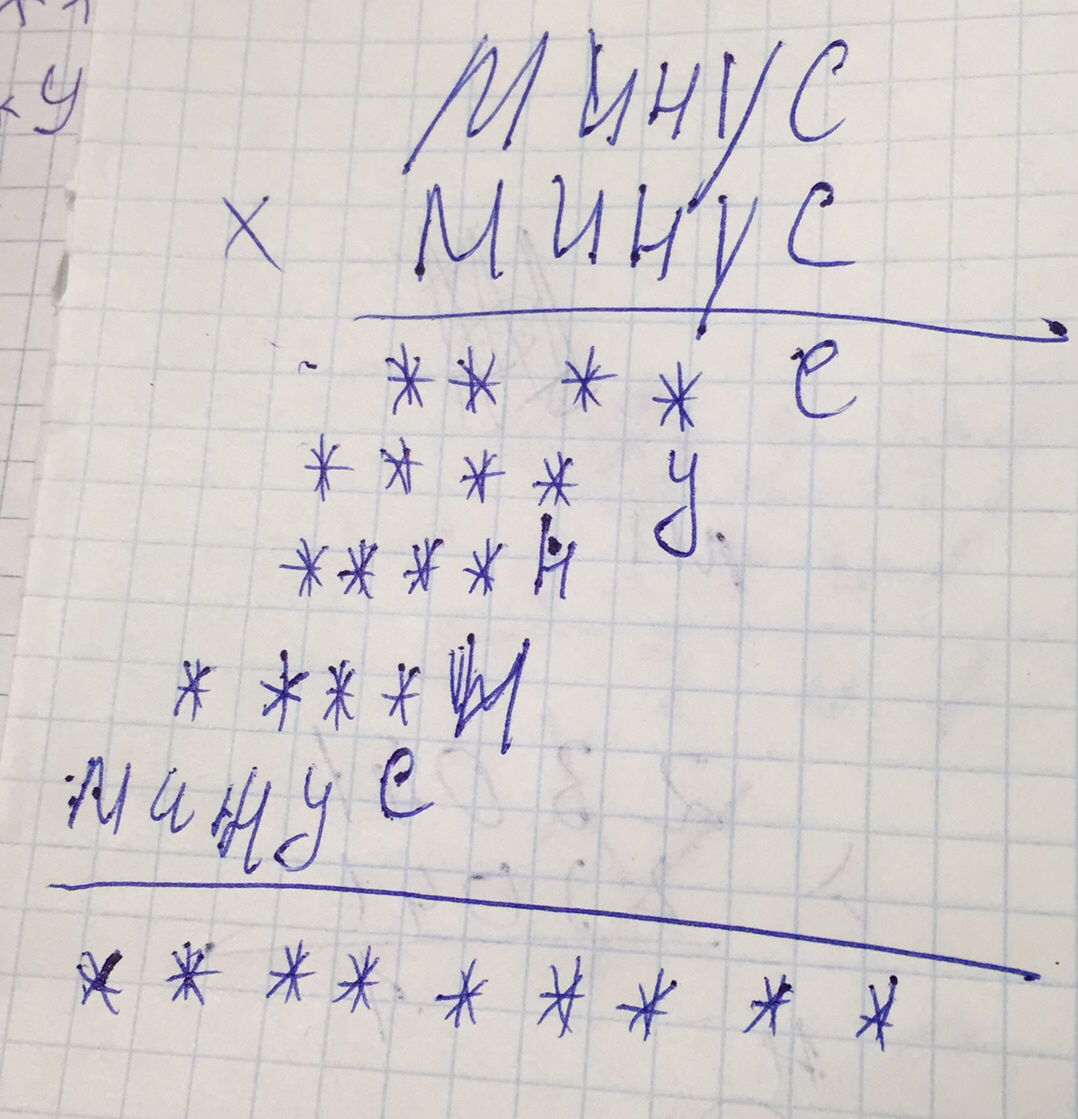 у
МИНУС
× МИНУС
* * * * С
* * * * У
* * * * Н
* * * * И
МИНУС
* * * * * * * * *